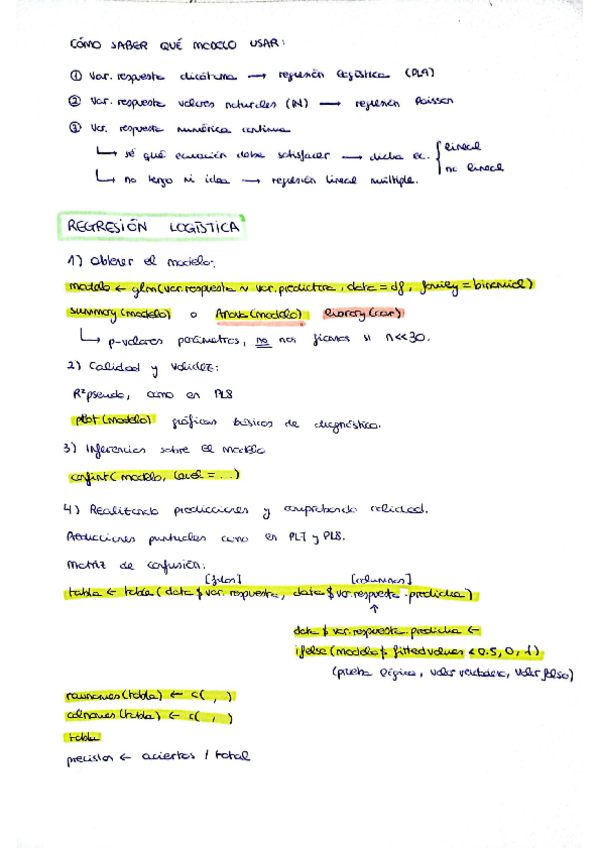 CÓMO SABER QUÉ MODELO USAR:
① Var. respuesta dicótoma → regresión logística (PL9)
② Var. respuesta valores naturales (N) → regresión Poisson
③ Var. respuesta numérica continua
↳ sé qué ecuación debe satisfacer → dicha ec. { lineal
no lineal
↳ no tengo ni idea → regresión lineal múltiple.
REGRESIÓN LOGÍSTICA
1) Obtener el modelo:
modelo ← glm(var.respuesta ~ var.predictora, data = df, family = binomial)
summary(modelo) o Anova(modelo) library(car)
↳ p-valores parámetros, no nos fiamos si n<<30.
2) Calidad y validez:
R²pseudo, como en PL8
plot(modelo) gráficas básicas de diagnóstico.
3) Inferencias sobre el modelo
confint(modelo, level = ...)
4) Realizando predicciones y comprobando calidad.
Predicciones puntuales como en PL7 y PL8.
Matriz de confusión:
[filas] [columnas]
tabla ← table(data$var.respuesta, data$var.respuesta.predicha)
↑
data$var.respuesta.predicha ←
ifelse(modelo$fitted.values < 0.5, 0, 1)
(prueba lógica, valor verdadero, valor falso)
rownames(tabla) ← c( , )
colnames(tabla) ← c( , )
tabla
precision ← aciertos / total